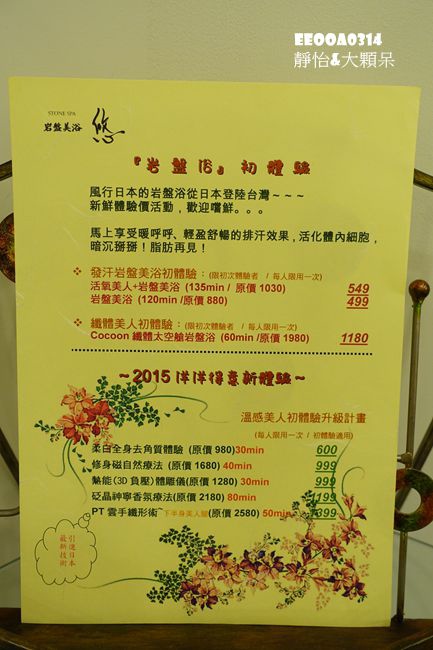 EE00A0314
靜怡&大顆呆
STONE SPA
岩盤美浴 悠
『岩盤浴』初體驗
風行日本的岩盤浴從日本登陸台灣～～～
新鮮體驗價活動，歡迎嚐鮮。。。
馬上享受暖呼呼、輕盈舒暢的排汗效果，活化體內細胞，
暗沉掰掰！脂肪再見！
❖ 發汗岩盤美浴初體驗：(限初次體驗者 / 每人限用一次)
活氧美人+岩盤美浴 (135min / 原價 1030) 549
岩盤美浴 (120min /原價 880) 499
❖ 纖體美人初體驗：(限初次體驗者 / 每人限用一次)
Cocoon 纖體太空艙岩盤浴 (60min /原價 1980) 1180
～2015 洋洋得意新體驗～
溫感美人初體驗升級計畫
(每人限用一次 / 初體驗適用)
柔白全身去角質體驗 (原價 980)30min 600
修身磁自然療法 (原價 1680) 40min 999
熱能(3D 負壓)體雕儀(原價 1280) 30min 999
砭晶神寧香氛療法(原價 2180) 80min 1199
PT 雲手纖形術~下半身美人腿(原價 2580) 50min 1399
引進日本
最新技術